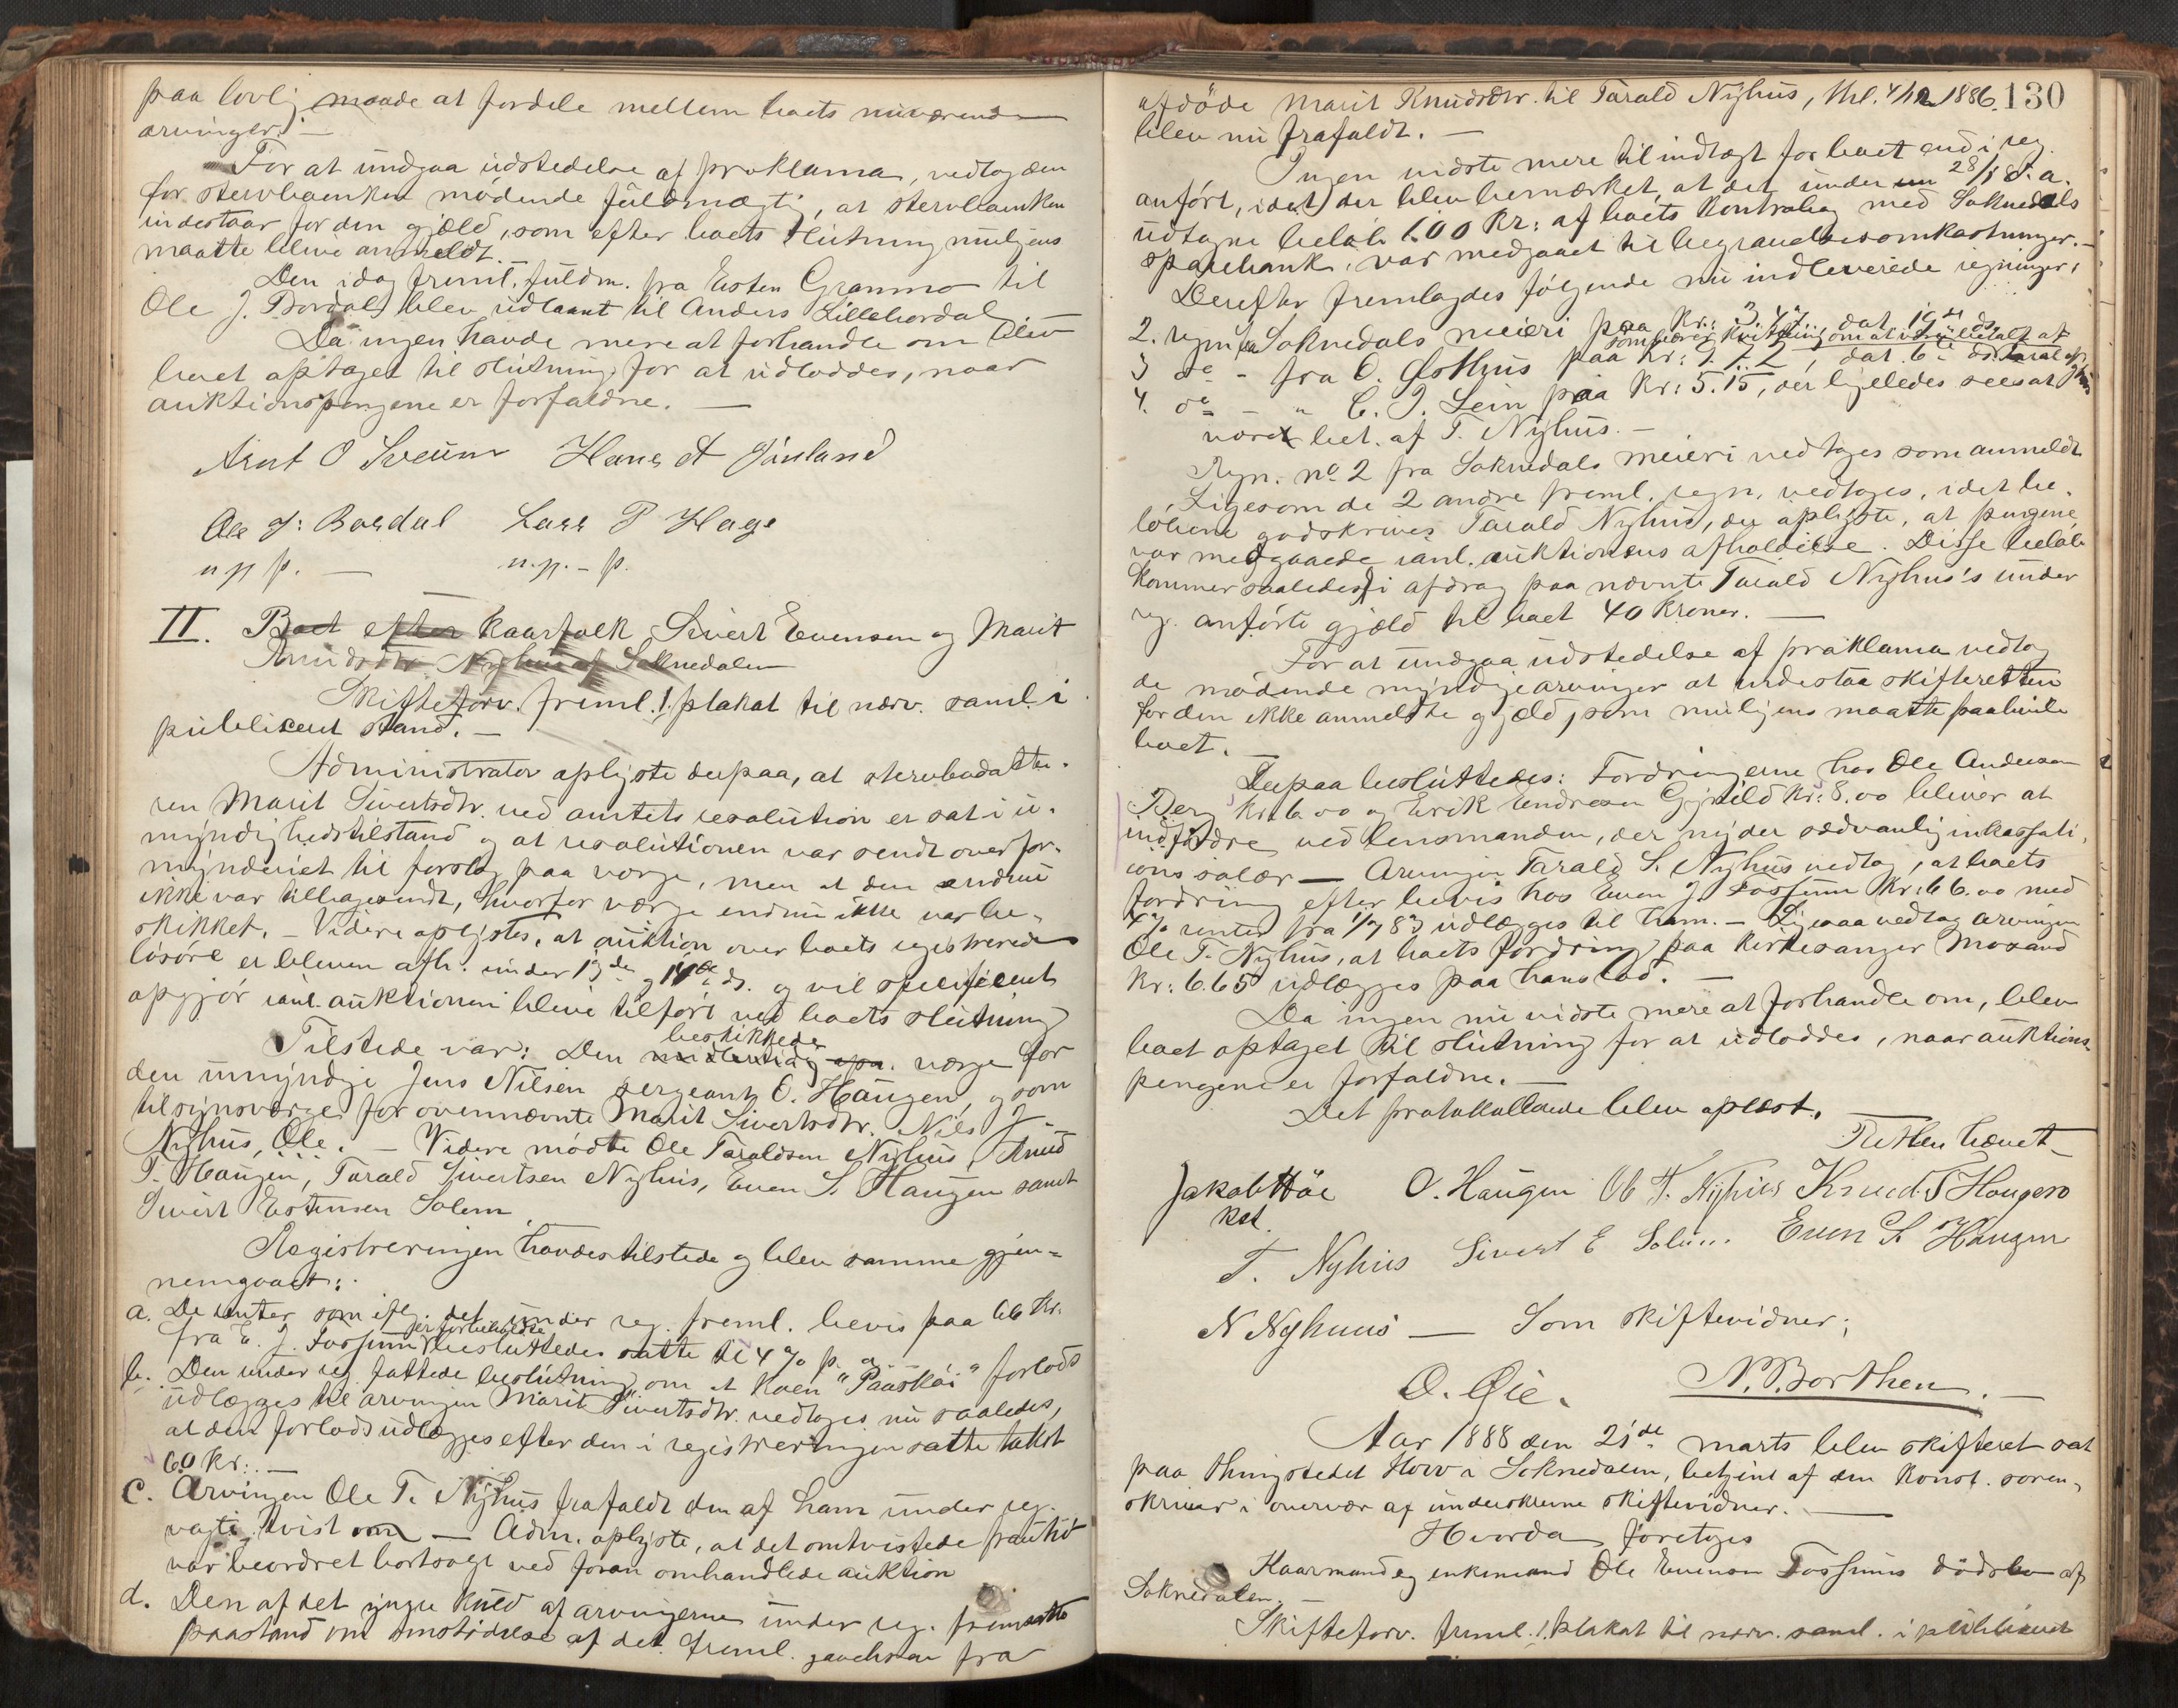 paa lovlig maade at fordele mellem boets nuværende
arvinger. —
For at undgaa udstedelse af proklama, vedtog den
for stervboenken mødende fuldmægtig, at stervboenken
indestaar for den gjæld, som efter boets slutning muligens
maatte blive anmeldt. —
Den idag freml. fuldm. fra Esten Granmo til
Ole J. Bordal blev udlaant til Anders Lillebordal
Da ingen havde mere at forhandle om blev
boet optaget til slutning for at udloddes, naar
auktionspengene er forfaldne. —
Arnt O Sveum Hans A
Ole J: Bordal Lars P Hage
m. p. p. — m. p. - p.
II. Boet efter kaarfolk Sivert Evensen og Marit
Knudsdtr Nyhus af Soknedalen
Skifteforv. freml. 1. plakat til nærv. saml. i
publiceret stand. —
Administrator oplyste derpaa, at stervbodatte-
ren Marit Sivertsdtr. ved amtets resolution er sat i u-
myndighedstilstand og at resolutionen var sendt overfor-
mynderiet til forslag paa værge, men at den endnu
ikke var tilbagesendt, hvorfor værge endnu ikke var be-
skikket. — Videre oplystes, at auktion over boets registrerede
løsøre er bleven afh. under 13de og 14de ds. og vil specificeret
opgjør ianl. auktionen blive tilført ved boets slutning
beskikkede
Tilstede var: Den midlertidig opn. værge for
den umyndige Jens Nilsen sergeant O. Haugen, og som
tilsynsværge for ovennævnte Marit Sivertsdtr. Nils J.
Nyhus, Ole. — Videre mødte Ole Taraldsen Nyhus, Knud
T. Haugen, Tarald Sivertsen Nyhus, Even S. Haugen samt
Sivert Estensen Solem
Registreringen havdes tilstede og blev samme gjen-
nemgaaet:
a. De renter som iflg. det under reg. freml. bevis paa 66 Kr.
er forbeholdte
fra E. J. Fossum besluttedes satte til 4 % p. a.
b. Den under reg. fattede beslutning om at koen "Paaskøi" forlods
udlægges til arvingen Marit Sivertsdtr. vedtoges nu saaledes,
at den forlods udlægges efter den i registreringen satte takst
60 Kr. —
c. Arvingen Ole T. Nyhus frafaldt den af ham under reg.
vagte tvist om — Adm. oplyste, at det omtvistede
var beordret bortsolgt ved foran omhandlede auktion
d. Den af det yngre kuld af arvingerne under reg. fremsatte
paastand om omstødelse af det freml. gavebrev fra
130
afdøde Marit Knudsdtr. til Tarald Nyhus, thl. 4/12 1886.
blev nu frafaldt. —
Ingen vidste mere til indtægt for boet end i reg.
anført, idet der blev bemærket, at det under 28/1 d. a.
udtagne beløb 100 Kr: af boets kontrabog med Soknedals
sparebank, var medgaaet til begravelsesomkostninger. —
Derefter fremlagdes følgende nu indleverede regninger:
2. regn. fra Soknedals meieri paa Kr.: 3.47 dat 19de ds.
som bærer kvittering om at være betalt af
3 do - fra O. Østhus paa Kr: 9.72, dat. 6te ds. Tarald Nyhus
4. do - " C. J. Lein paa Kr: 5.15, der ligeledes sees at
være bet. af T. Nyhus. —
Regn. no 2 fra Soknedals meieri vedtoges som anmeldt
Ligesom de 2 andre freml. regn. vedtoges, idet be-
løbene godskrives Tarald Nyhus, der oplyste, at pengene
var medgaaede ianl. auktionens afholdelse. Disse beløb
kommer saaledes i afdrag paa nævnte Tarald Nyhus's under
reg. anførte gjæld til boet 40 Kroner. —
For at undgaa udstedelse af proklama vedtog
de mødende myndige arvinger at indestaa skifteretten
for den ikke anmeldte gjæld, som muligens maatte paahvile
boet. —
Derpaa besluttedes: Fordringerne hos Ole Andersen
Berg Kr: 6.00 og Erik Endresen Gynild Kr: 8.00 bliver at
indfordre ved lensmanden, der nyder sædvanlig inkassati-
onssalær — Arvingen Tarald S. Nyhus vedtog, at boets
fordring efter bevis hos Even J. Fossum Kr: 66.00 med
4 % renter fra 1/7 83 udlægges til ham. — Ligesaa vedtog arvingen
Ole T. Nyhus, at boets fordring paa kirkesanger Moxand
Kr: 6.65 udlægges paa hans lod. —
Da ingen nu vidste mere at forhandle om, blev
boet optaget til slutning for at udloddes, naar auktions-
pengene er forfaldne. —
Det protokollerede blev oplæst. —
Retten hævet
Jakob Høe O. Haugen Ole T. Nyhus Knud T Haugen
kst.
T. Nyhus Sivert E Solem Even S. Haugen
N Nyhuus — Som skiftevidner;
O. Øie. N. P. Borthen. —
Aar 1888 den 21de marts blev skifteret sat
paa thingstedet Hov i Soknedalen, betjent af den konst. soren-
skriver i overvær af underskrevne skiftevidner. —
Hvorda foretoges
Kaarmand og enkemand Ole Evensen Fossums dødsbo af
Soknedalen. —
Skifteforv. freml. 1. plakat til nærv. saml. i publiceret